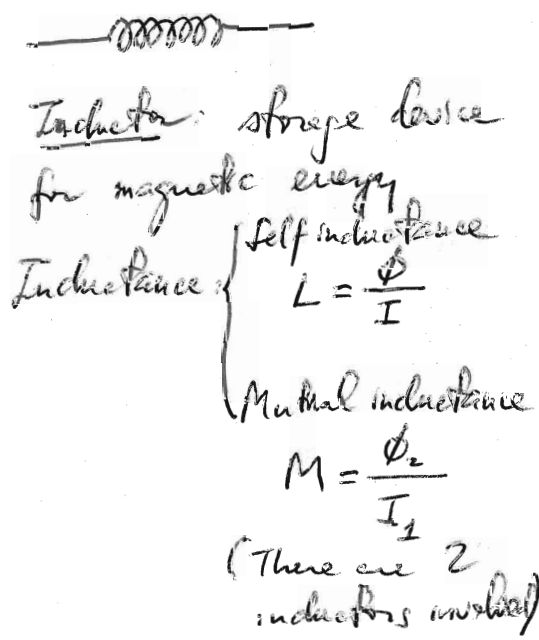 Inductor: storage device
for magnetic energy
Inductance: { Self inductance
L = ϕ / I
Mutual inductance
M = ϕ₂ / I₁
(There are 2
inductors involved)